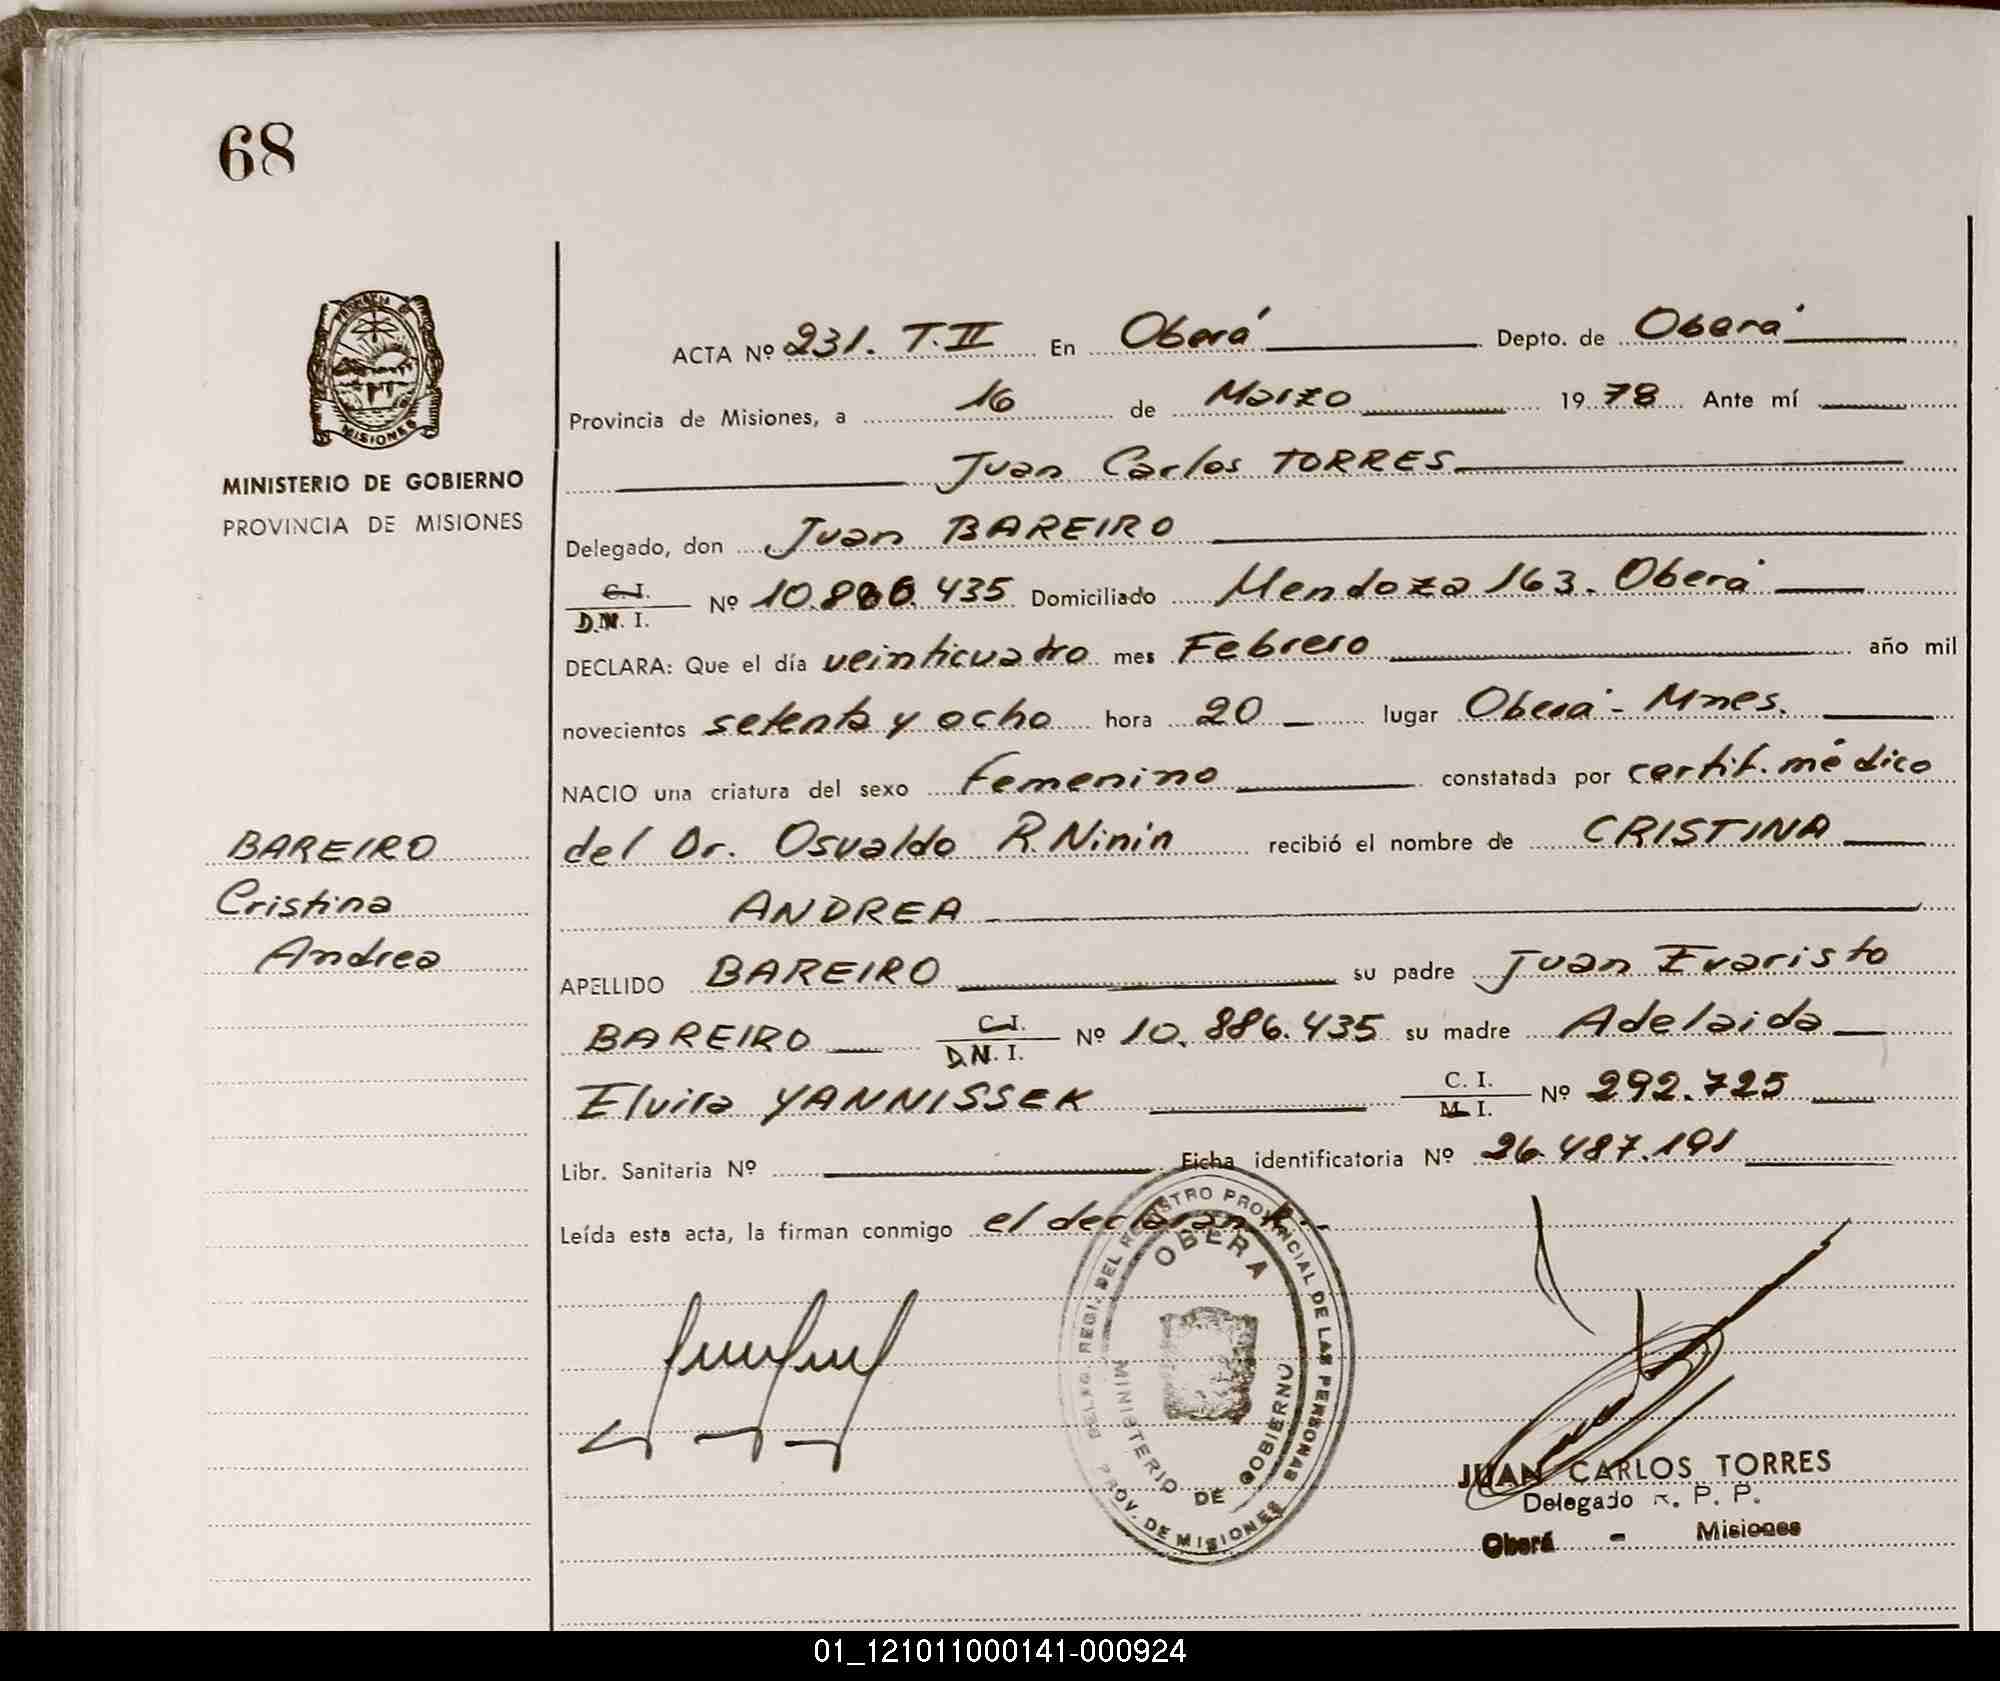 68
MINISTERIO DE GOBIERNO
PROVINCIA DE MISIONES
BAREIRO
Cristina
Andrea
ACTA Nº 231. T. II En Oberá Depto. de Oberá
Provincia de Misiones, a 16 de Marzo 1978 Ante mí
Juan Carlos TORRES
Delegado, don Juan BAREIRO
C. I.
D.N. I. Nº 10.886.435 Domiciliado Mendoza 163. Oberá
DECLARA: Que el día veinticuatro mes Febrero año mil
novecientos setenta y ocho hora 20 lugar Oberá - Mnes.
NACIO una criatura del sexo Femenino constatada por certif. médico
del Dr. Osvaldo R Ninin recibió el nombre de CRISTINA
ANDREA
APELLIDO BAREIRO su padre Juan Evaristo
BAREIRO C. I. D.N. I. Nº 10.886.435 su madre Adelaida
Elvira YANNISSEK C. I. M. I. Nº 292.725
Libr. Sanitaria Nº Ficha identificatoria Nº 26.487.191
Leída esta acta, la firman conmigo el declarante.-
DEL REGISTRO PROVINCIAL DE LAS PERSONAS
OBERA
MINISTERIO DE GOBIERNO
PROV. DE MISIONES
JUAN CARLOS TORRES
Delegado R. P. P.
Oberá - Misiones
01_121011000141-000924